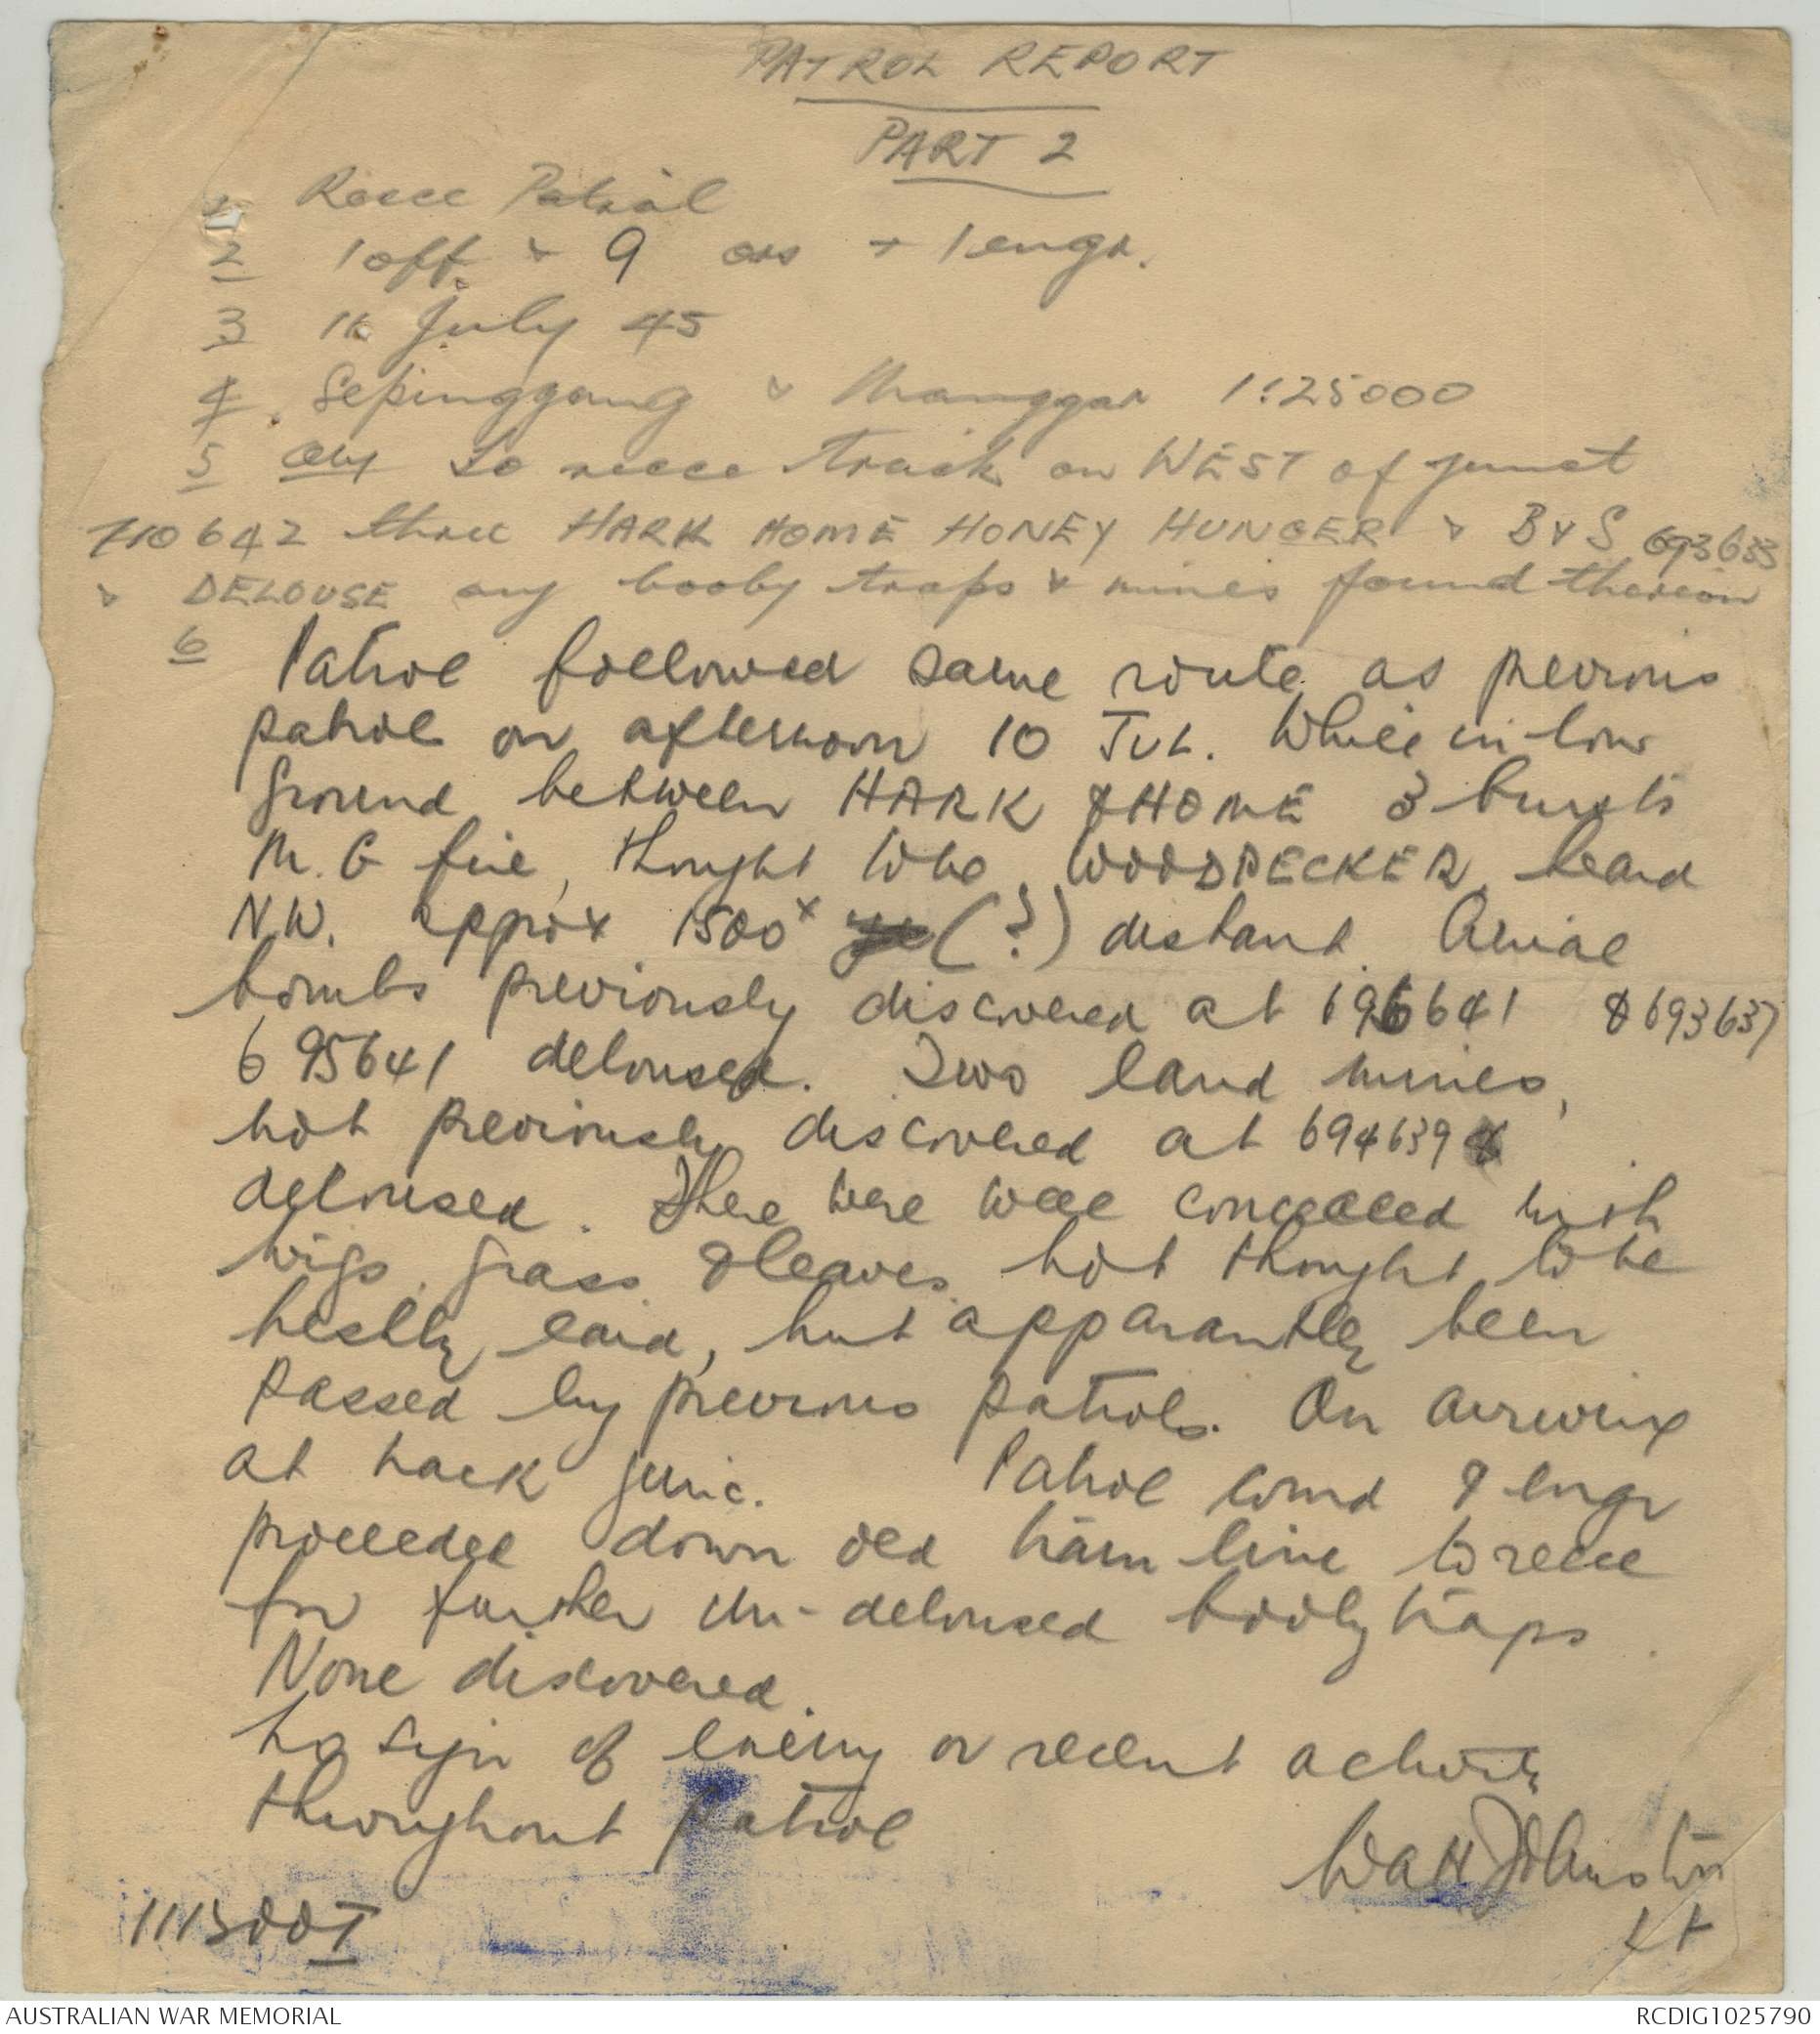 PATROL REPORT
PART 2
1 Recce Patrol
2 1 off. & 9 ors + 1 engr.
3 11 July 45
4. Sepinggang & Manggar 1:25000
5 Obj to recce track on WEST of junct
710642 thru HARK HOME HONEY HUNGER & B & S 693633
& DELOUSE any booby traps & mines found thereon
6 Patrol followed same route as previous
patrol on afternoon 10 JUL. While in low
ground between HARK & HOME 3 bursts
M.G fire, thought to be WOODPECKER, heard
N.W. approx 1500x (?) distant. Aerial
bombs previously discovered at 696641 & 693637
695641 deloused. Two land mines,
not previously discovered at 694639
deloused. These were well concealed with
twigs, grass & leaves, not thought to be
freshly laid, but apparantley been
passed by previous patrols. On arriving
at track junc. Patrol comd & engr
proceeded down old tram line to recce
for further un-deloused booby traps
None discovered.
No sign of enemy or recent activity
throughout patrol
Watt Johnston
Lt
111300I
AUSTRALIAN WAR MEMORIAL
RCDIG1025790